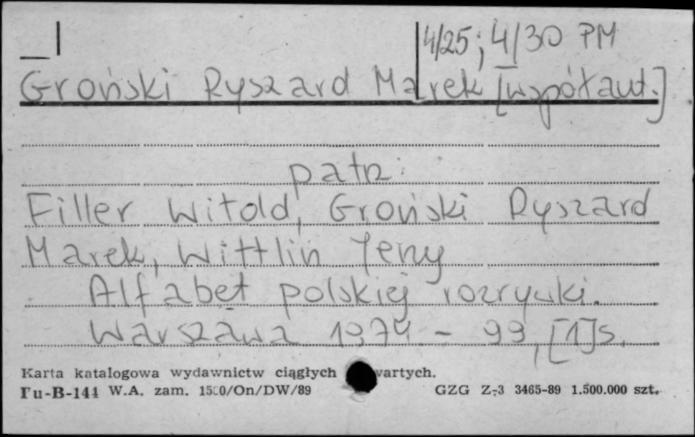 4/25; 4/30 PM
Groński Ryszard Marek [współaut.]
patrz:
Filler Witold, Groński Ryszard
Marek, Wittlin Jerzy
Alfabet polskiej rozrywki.
Warszawa 1974 - 99, [1] s.
Karta katalogowa wydawnictw ciągłych wartych.
Pu-B-144 W.A. zam. 1500/On/DW/89 GZG Z-3 3465-89 1.500.000 szt.